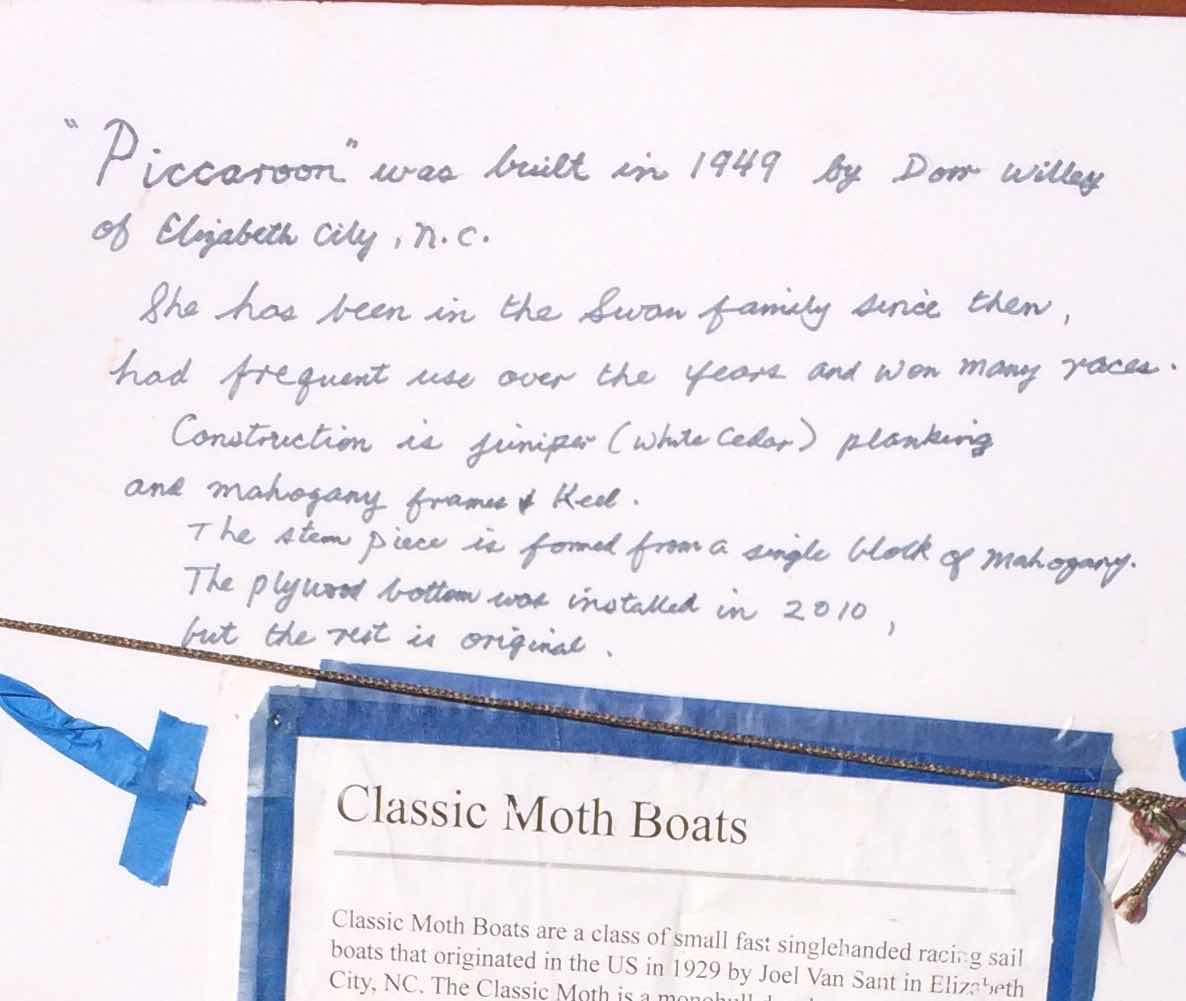 "Piccaroon" was built in 1949 by Dorr Willey
of Elizabeth City, N.C.
She has been in the Swan family since then,
had frequent use over the years and won many races.
Construction is juniper (white Cedar) planking
and mahogany frames & Keel.
The stem piece is formed from a single block of Mahogany.
The plywood bottom was installed in 2010,
but the rest is original.
Classic Moth Boats
Classic Moth Boats are a class of small fast singlehanded racing sail
boats that originated in the US in 1929 by Joel Van Sant in Elizabeth
City, NC. The Classic Moth is a monohull